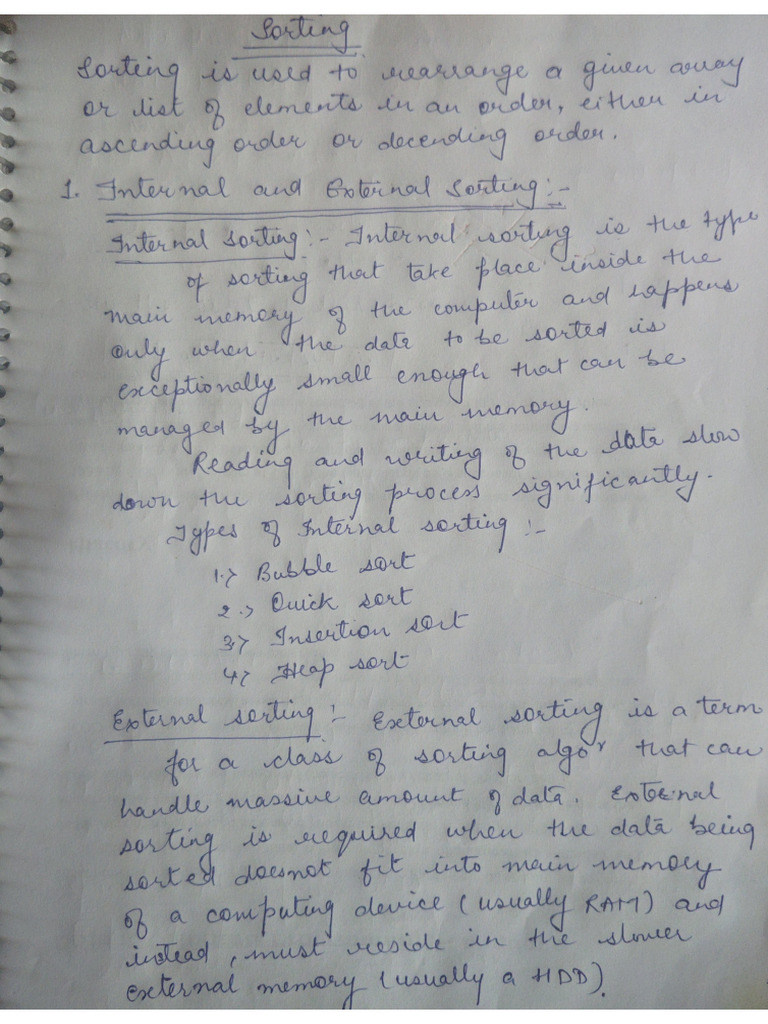 Sorting
Sorting is used to rearrange a given array
or list of elements in an order, either in
ascending order or decending order.
1. Internal and External Sorting:-
Internal Sorting:- Internal sorting is the type
of sorting that take place inside the
main memory of the computer and happens
only when the data to be sorted is
exceptionally small enough that can be
managed by the main memory.
Reading and writing of the data slow
down the sorting process significantly.
Types of Internal sorting :-
1.> Bubble sort
2.> Quick sort
3.> Insertion sort
4.> Heap sort
External sorting :- External sorting is a term
for a class of sorting algoʳ that can
handle massive amount of data. External
sorting is required when the data being
sorted doesnot fit into main memory
of a computing device (usually RAM) and
instead, must reside in the slower
external memory (usually a HDD).